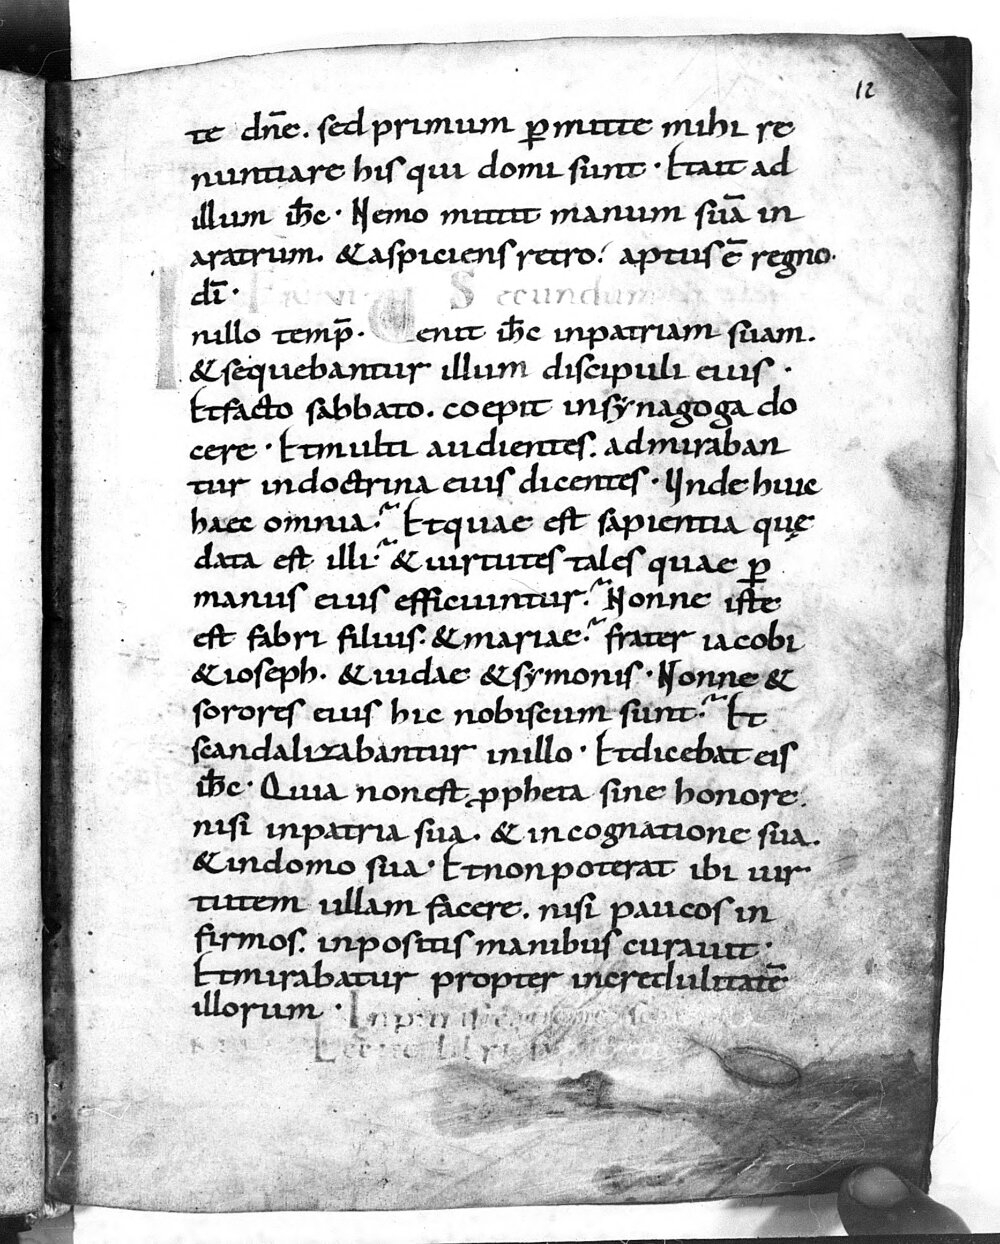 12
te dn̄e. sed primum p̲mitte mihi re
nuntiare his qui domi sunt · Et ait ad
illum ih̄c · Nemo mittit manum suā in
aratrum. & aspiciens retro. aptus ē regno
dī · Secundum
nillo temp̄. Uenit ih̄c inpatriam suam.
& sequebantur illum discipuli eius ·
Et facto sabbato. coepit insynagoga do
cere · Et multi audientes. admiraban
tur indoctrina eius dicentes · Unde huic
haec omnia? Et quae est sapientia quę
data est illi? & uirtutes tales quae p̲
manus eius efficiuntur? Nonne iste
est fabri filius. & mariae? frater iacobi
& ioseph. & iudae & symonis · Nonne &
sorores eius hic nobiscum sunt? Et
scandalizabantur inillo · Et dicebat eis
ih̄c · Quia nonest ꝓpheta sine honore.
nisi inpatria sua. & incognatione sua.
& indomo sua · Et nonpoterat ibi uir
tutem ullam facere. nisi paucos in
firmos. inpositis manibus curauit ·
Et mirabatur propter incredulitatē
illorum ·